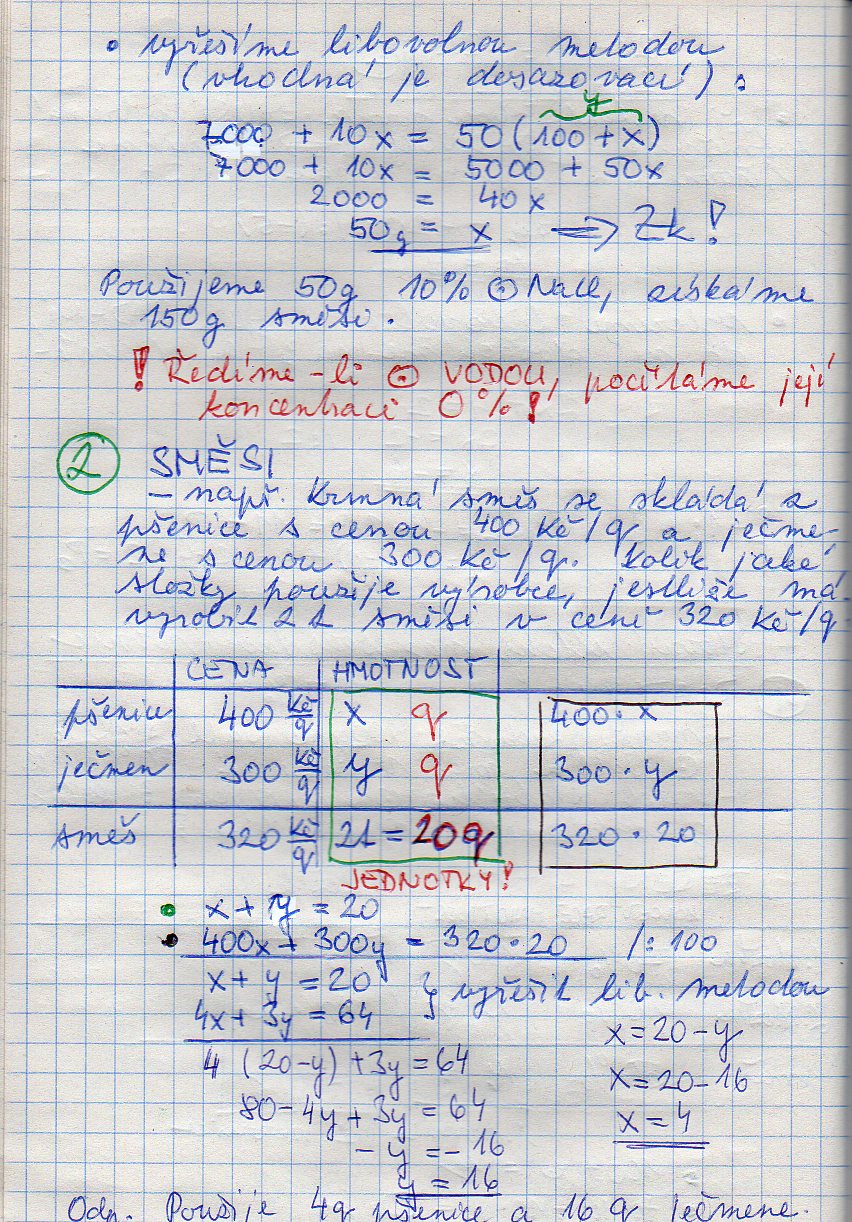 • vyřešíme libovolnou metodou
(vhodná je dosazovací) :
y
7000 + 10x = 50 (100 + x)
7000 + 10x = 5000 + 50x
2000 = 40x
50g = x ⟹ Zk!
Použijeme 50g 10% ⊙ NaCl, získáme
150g směsi.
! Ředíme-li ⊙ VODOU, počítáme její
koncentraci 0%!
2 SMĚSI
– např. Krmná směs se skládá z
pšenice s cenou 400 Kč/q a ječme-
ne s cenou 300 Kč/q. Kolik jaké
složky použije výrobce, jestliže má
vyrobit 2t směsi v ceně 320 Kč/q.
CENA HMOTNOST
pšenice 400 Kč/q x q 400 · x
ječmen 300 Kč/q y q 300 · y
směs 320 Kč/q 2t = 20q 320 · 20
JEDNOTKY!
• x + y = 20
• 400x + 300y = 320 · 20 /: 100
x + y = 20 } vyřešit lib. metodou
4x + 3y = 64
x = 20 - y
4 (20-y) + 3y = 64
x = 20 - 16
80 - 4y + 3y = 64
x = 4
- y = - 16
y = 16
Odp. Použije 4q pšenice a 16 q ječmene.